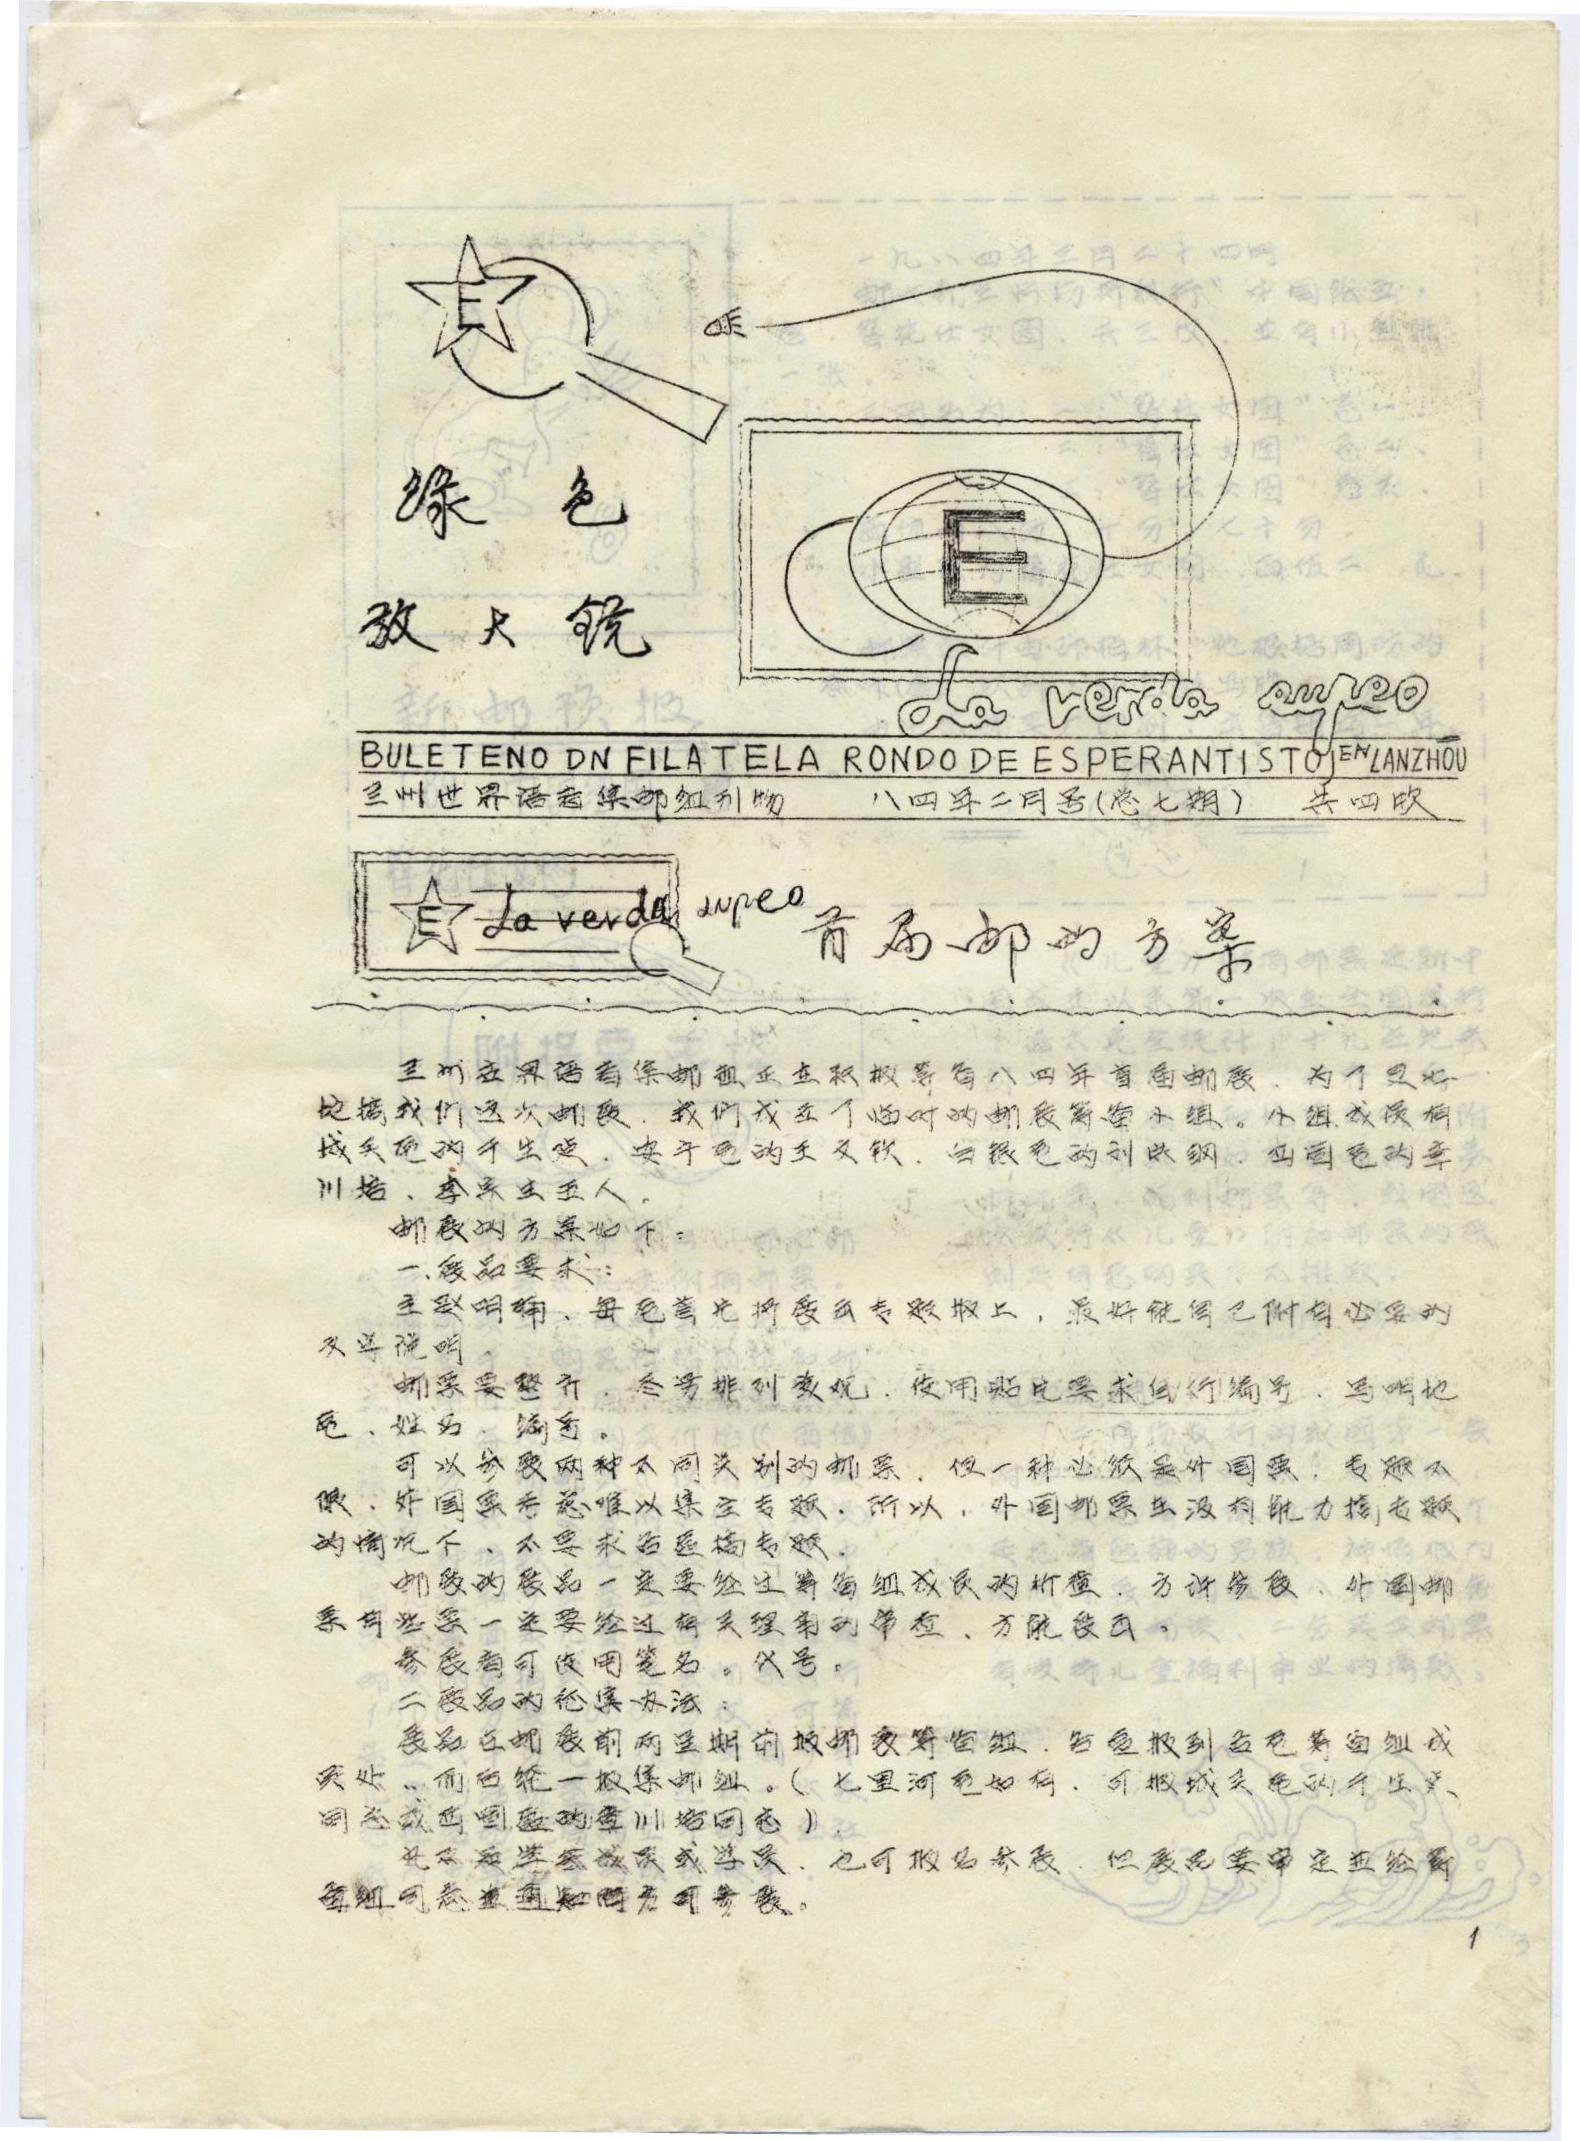 E
绿色
放大镜
E
La verda lupeo
BULETENO DN FILATELA RONDO DE ESPERANTISTOJ EN LANZHOU
兰州世界语者集邮组刊物 八四年二月号(总七期) 共四版
E La verda lupeo 首届邮的方案
兰州世界语者集邮组正在积极筹备八四年首届邮展、为了更好
地搞我们这次邮展、我们成立了临时的邮展筹备小组。小组成员有
城关区的 安宁区的王 白银区的刘 西固区的
川培、李 生五人。
邮展的方案如下:
一、展品要求:
主题明确、每区首先将展出专题报上,最好能自己附有必要的
文字说明。
邮票要整齐、尽量排列美观、使用贴片要求自行编号、写明地
区、姓名、编号。
可以参展两种不同类别的邮票、但一种必须是外国票、专题不
限、外国票考虑难以集全专题、所以,外国邮票在没有能力搞专题
的情况下、不要求各区搞专题。
邮展的展品一定要经过筹备组成员的检查、方许参展、外国邮
票有些票一定要经过有关组织的审查、方能展出。
参展者可使用笔名。代号。
二展品的征集办法:
展品在邮展前两星期前报邮展筹备组、各区报到各区筹备组成
员处、而后统一报集邮组。(七里河区如有、可报城关区的
同志或西固区的 川培同志)
凡不是 成员或学员、也可报名参展、但展品要审定并经筹
备组同意并通知后方可参展。
1